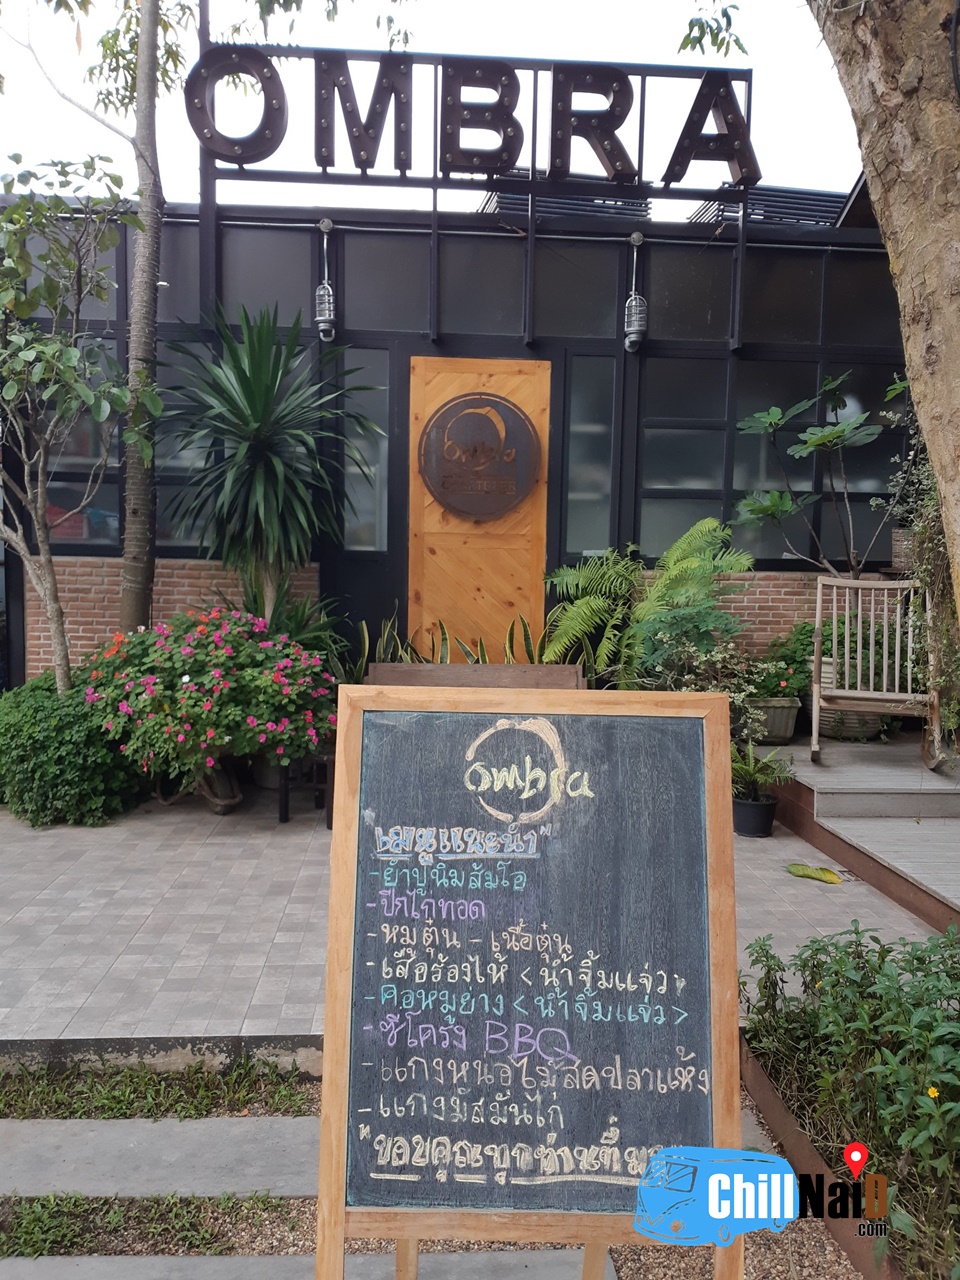 OMBRA
ombra
ombra
"เมนูแนะนำ"
- ยำปูนิ่มส้มโอ
- ปีกไก่ทอด
- หมูตุ๋น - เนื้อตุ๋น
- เสือร้องไห้ < น้ำจิ้มแจ่ว >
- คอหมูย่าง < น้ำจิ้มแจ่ว >
- ซี่โครง BBQ
- แกงหน่อไม้สดปลาแห้ง
- แกงมัสมั่นไก่
"ขอบคุณทุกท่านที่
ChillNaiD
.com